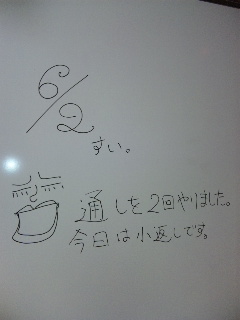 6/2
すい。
通しを2回やりました。
今日は小返しです。